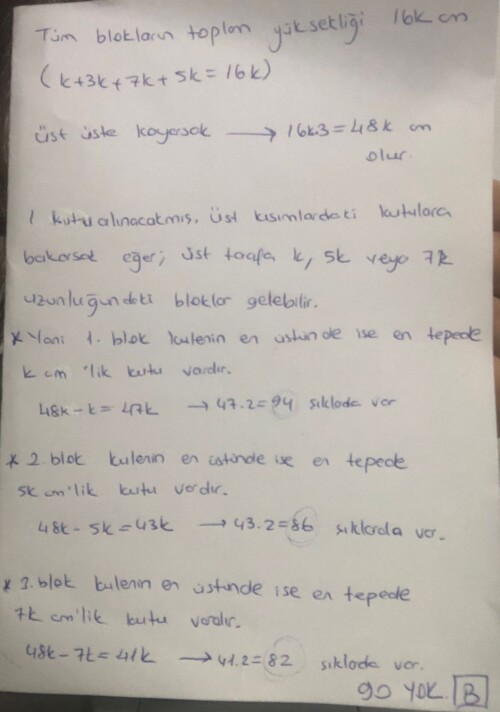 Tüm blokların toplam yüksekliği 16k cm
(k+3k+7k+5k=16k)
üst üste koyarsak → 16k.3=48k cm
olur.
1 kutu alınacakmış, üst kısımlardaki kutulara
bakarsak eğer; üst tarafa k, 5k veya 7k
uzunluğundaki bloklar gelebilir.
* Yani 1. blok kulenin en üstünde ise en tepede
k cm 'lik kutu vardır.
48k-k=47k → 47.2=94 şıklada var
* 2. blok kulenin en üstünde ise en tepede
5k cm'lik kutu vardır.
48k-5k=43k → 43.2=86 şıklarda var.
* 3. blok kulenin en üstünde ise en tepede
7k cm'lik kutu vardır.
48k-7k=41k → 41.2=82 şıklada var.
90 YOK. B